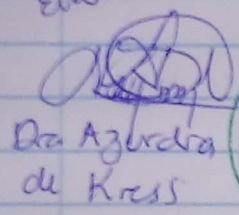 Dra Azurdia
de Kress